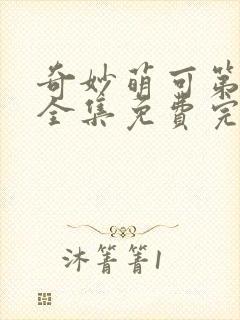 奇妙萌可第
全集免费完
沐箐箐1